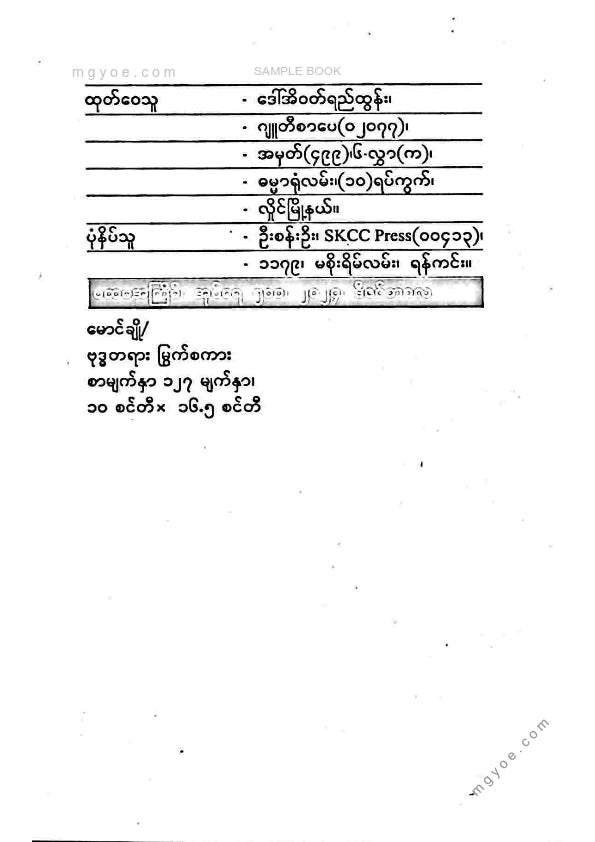 mgyoe.com SAMPLE BOOK
ထုတ်ဝေသူ - ဒေါ်အိဝတ်ရည်ထွန်း၊
- ဂျူတီစာပေ(၀၂၀၇၇)၊
- အမှတ်(၄၉၉)၊၆-လွှာ(က)၊
- ဓမ္မာရုံလမ်း၊(၁၀)ရပ်ကွက်၊
- လှိုင်မြို့နယ်။
ပုံနှိပ်သူ - ဦးစန်းဦး၊ SKCC Press(၀၀၄၁၃)၊
- ၁၁၇၉၊ မစိုးရိမ်လမ်း၊ ရန်ကင်း။
မောင်ချို/
ဗုဒ္ဓတရား မြွက်စကား
စာမျက်နှာ ၁၂၇ မျက်နှာ၊
၁၀ စင်တီ × ၁၆.၅ စင်တီ
mgyoe.com